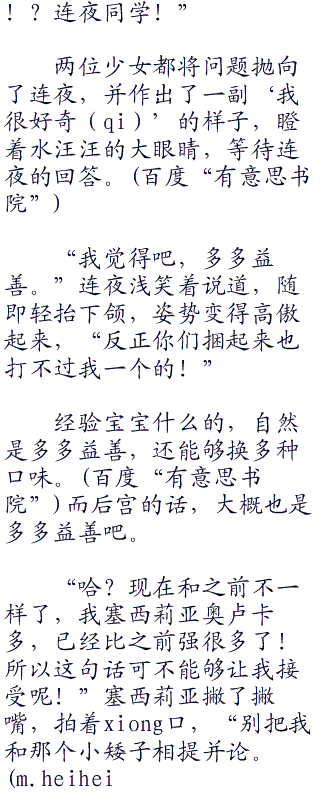 ！？连夜同学！”
两位少女都将问题抛向
了连夜，并作出了一副‘我
很好奇（qi）’的样子，瞪
着水汪汪的大眼睛，等待连
夜的回答。(百度“有意思书
院”)
“我觉得吧，多多益
善。”连夜浅笑着说道，随
即轻抬下颌，姿势变得高傲
起来，“反正你们捆起来也
打不过我一个的！”
经验宝宝什么的，自然
是多多益善，还能够换多种
口味。(百度“有意思书
院”)而后宫的话，大概也是
多多益善吧。
“哈？现在和之前不一
样了，我塞西莉亚奥卢卡
多，已经比之前强很多了！
所以这句话可不能够让我接
受呢！”塞西莉亚撇了撇
嘴，拍着xiong口，“别把我
和那个小矮子相提并论。
(m.heihei